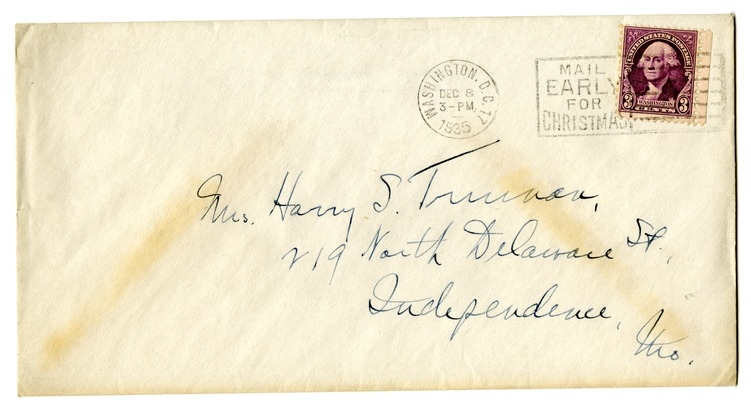 WASHINGTON, D.C. 17
DEC 8
3-PM
1935
MAIL
EARLY
FOR
CHRISTMAS
UNITED STATES POSTAGE
3 WASHINGTON 3
Mrs. Harry S. Truman,
219 North Delaware St.,
Independence,
Mo.